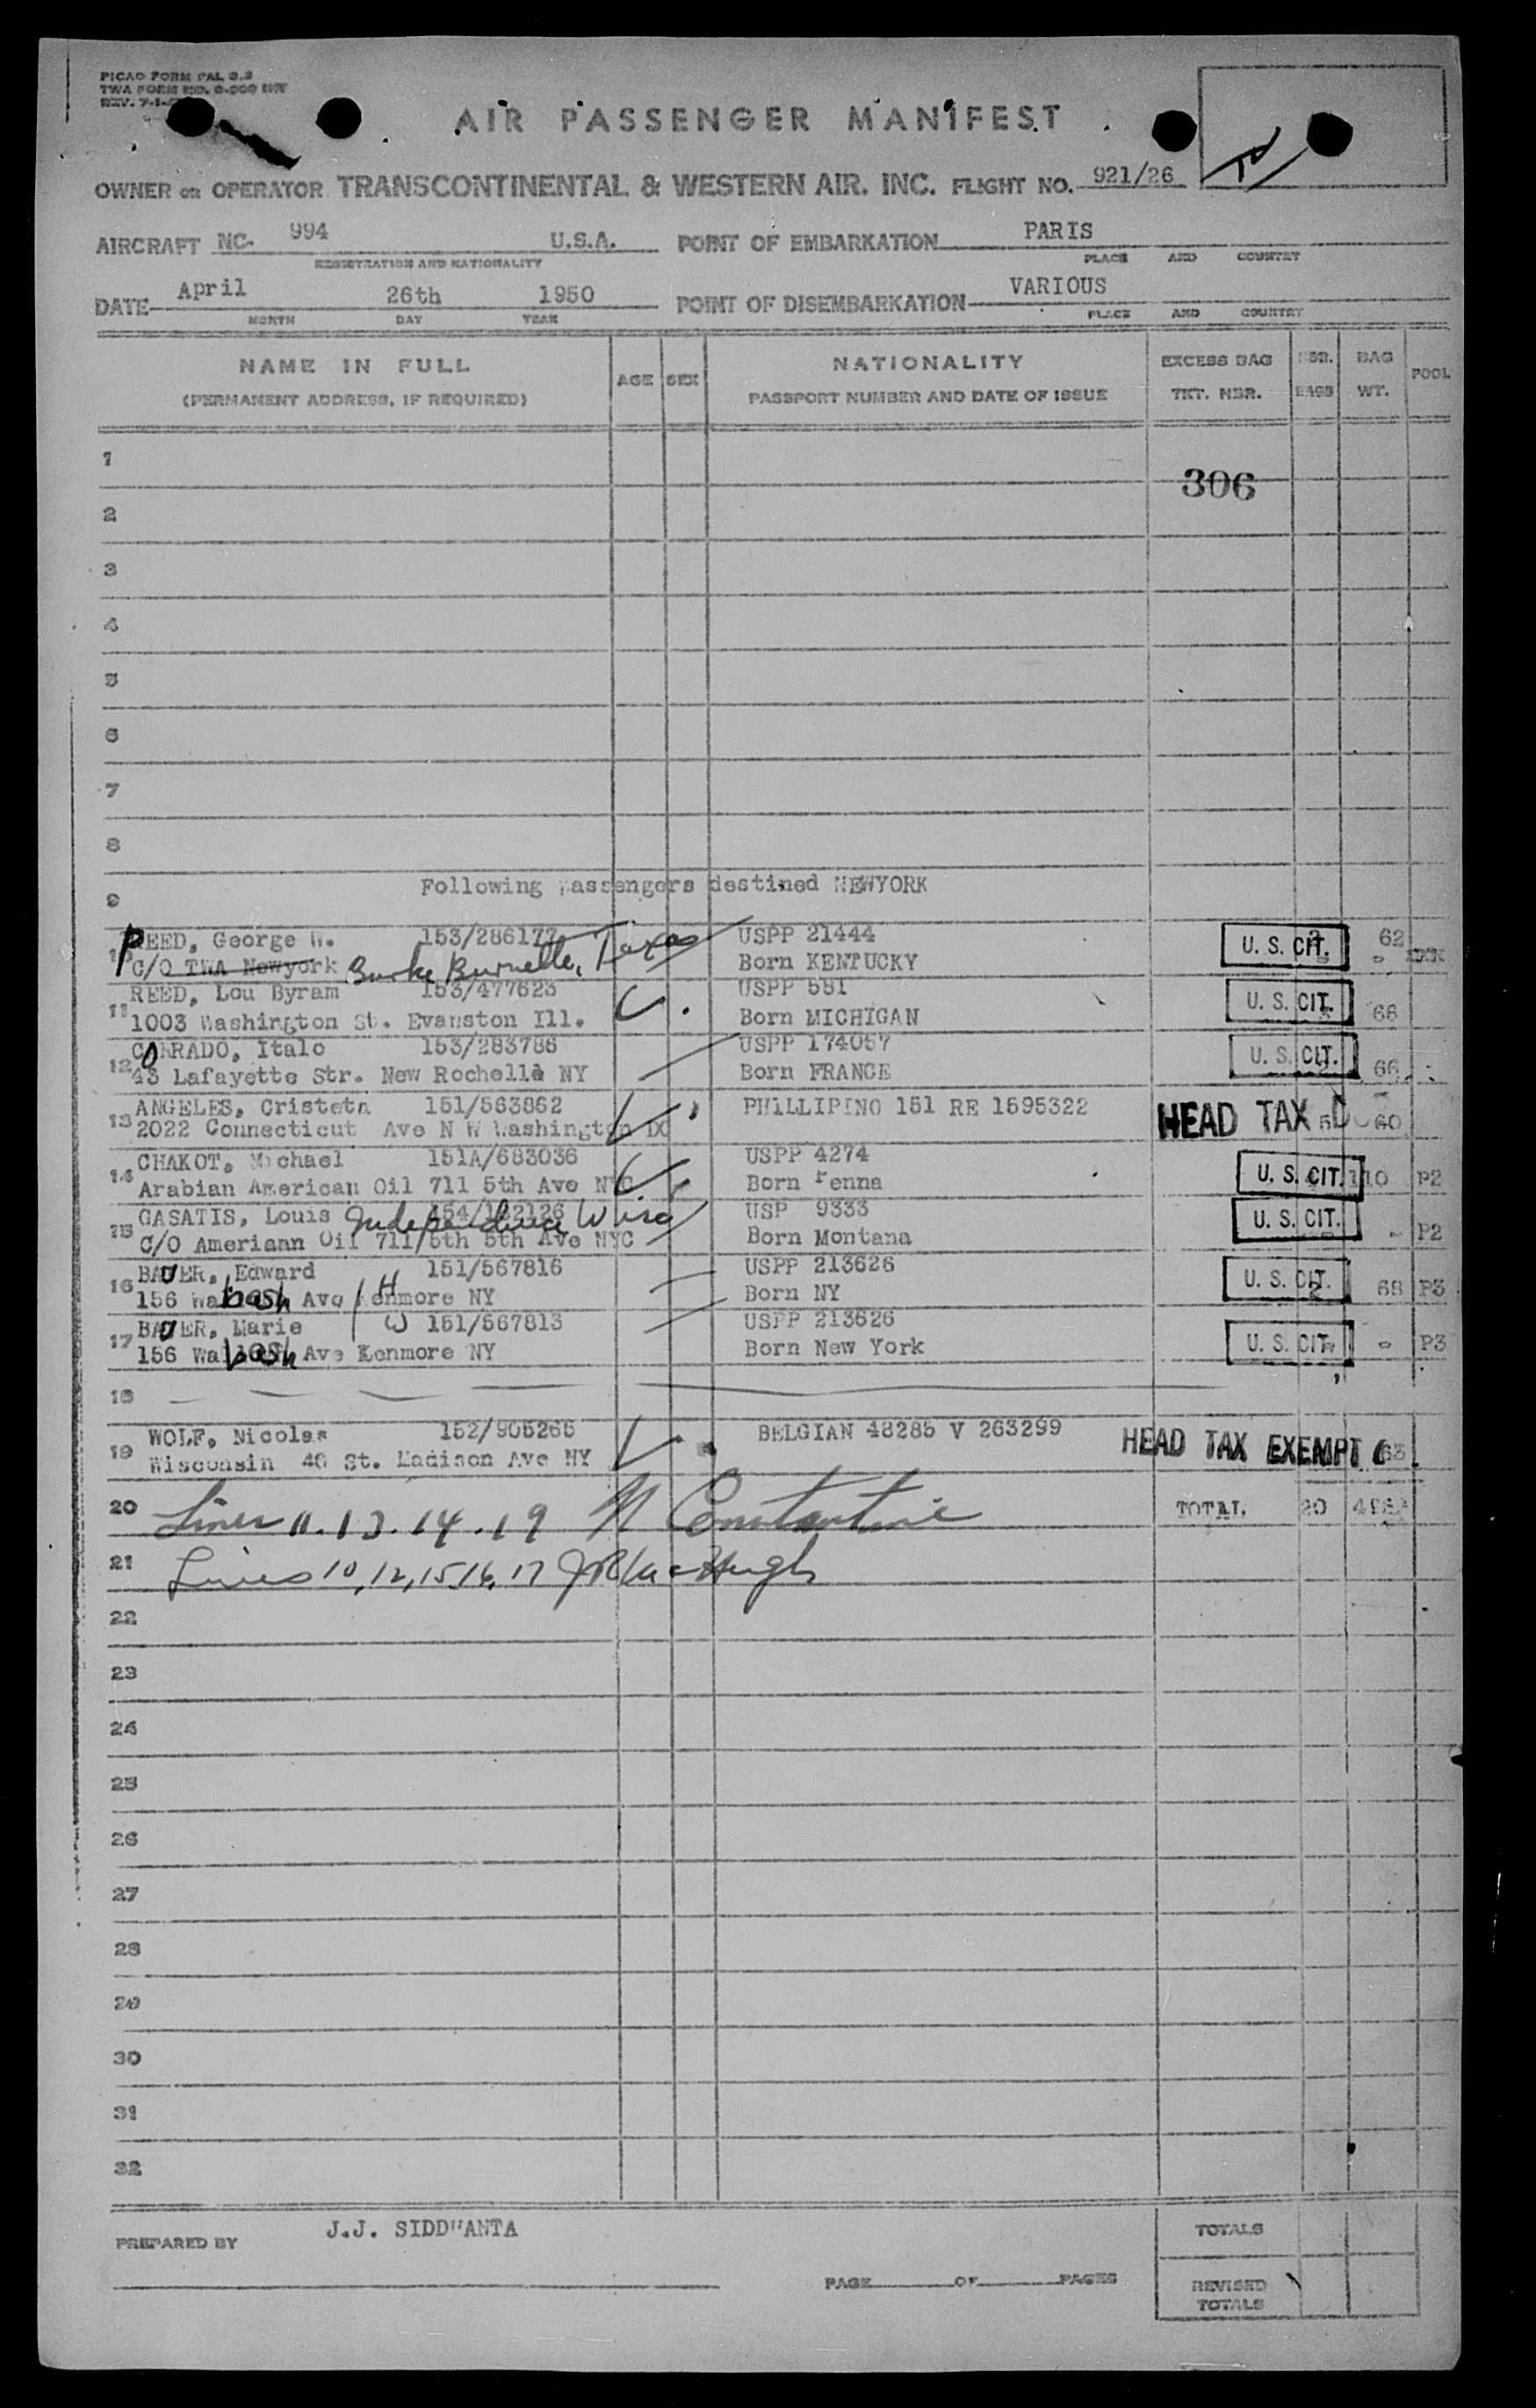 PICAO FORM PAL 2.3
TWA FORM
REV. 7-1-
AIR PASSENGER MANIFEST
OWNER OR OPERATOR TRANSCONTINENTAL & WESTERN AIR. INC. FLIGHT NO. 921/26
AIRCRAFT NC- 994 U.S.A. POINT OF EMBARKATION PARIS
REGISTRATION AND NATIONALITY PLACE AND COUNTRY
DATE April 26th 1950 POINT OF DISEMBARKATION VARIOUS
MONTH DAY YEAR PLACE AND COUNTRY
NAME IN FULL AGE SEX NATIONALITY EXCESS BAG NBR. BAG POOL
(PERMANENT ADDRESS, IF REQUIRED) PASSPORT NUMBER AND DATE OF ISSUE TKT. NBR. BAGS WT.
1
306
2
3
4
5
6
7
8
9 Following passengers destined NEWYORK
REED, George W. 153/286177 USPP 21444 U. S. CIT. 62
10 C/O TWA Newyork Burke Burnette, Texas Born KENTUCKY
REED, Lou Byram 153/477623 USPP 581 U. S. CIT. 66
11 1003 Washington St. Evanston Ill. Born MICHIGAN
CORRADO, Italo 153/283786 USPP 174057 U. S. CIT. 66
12 43 Lafayette Str. New Rochelle NY Born FRANCE
ANGELES, Cristeta 151/563862 PHILLIPINO 151 RE 1595322 HEAD TAX 60
13 2022 Connecticut Ave N W Washington DC
CHAKOT, Michael 151A/683036 USPP 4274 U. S. CIT. 110 P2
14 Arabian American Oil 711 5th Ave NYC Born Penna
GASATIS, Louis 154/182126 Independence Wisc USP 9333 U. S. CIT. - P2
15 C/O Ameriann Oil 711/5th 5th Ave NYC Born Montana
BAUER, Edward 151/567816 USPP 213626 U. S. CIT. 68 P3
16 156 Wabash Ave Kenmore NY H Born NY
BAUER, Marie W 151/567813 USPP 213626 U. S. CIT. - P3
17 156 Wabash Ave Kenmore NY Born New York
18
WOLF, Nicolas 152/905265 BELGIAN 48285 V 263299 HEAD TAX EXEMPT 63
19 Wisconsin 46 St. Madison Ave NY
20 Lines 11.13.14.19 N Constantine TOTAL 20
21 Lines 10,12,15,16,17 J R MacHugh
22
23
24
25
26
27
28
29
30
31
32
PREPARED BY J.J. SIDDHANTA TOTALS
PAGE OF PAGES REVISED
TOTALS